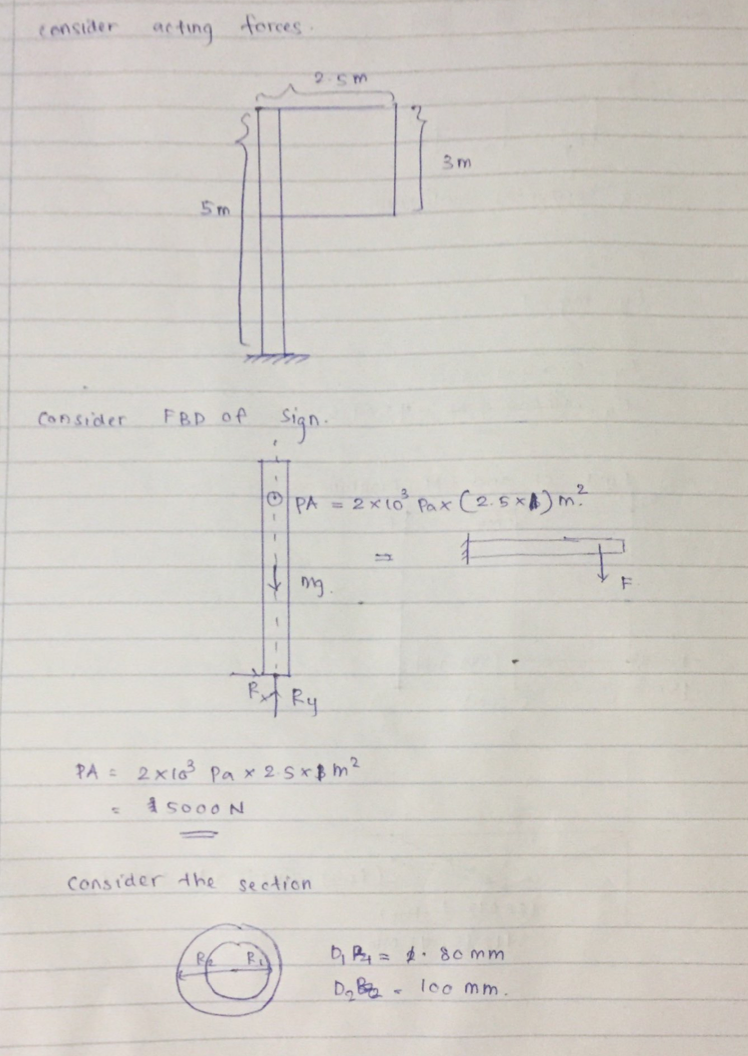 consider acting forces.
2.5m
3m
5m
Consider FBD of sign.
PA = 2×10³ Pa × (2.5×1) m².
=
mg.
F
Rx Ry
PA = 2×10³ Pa × 2.5× m²
= 5000 N
Consider the section
R2 R1
D1 = 80 mm
D2 = 100 mm.